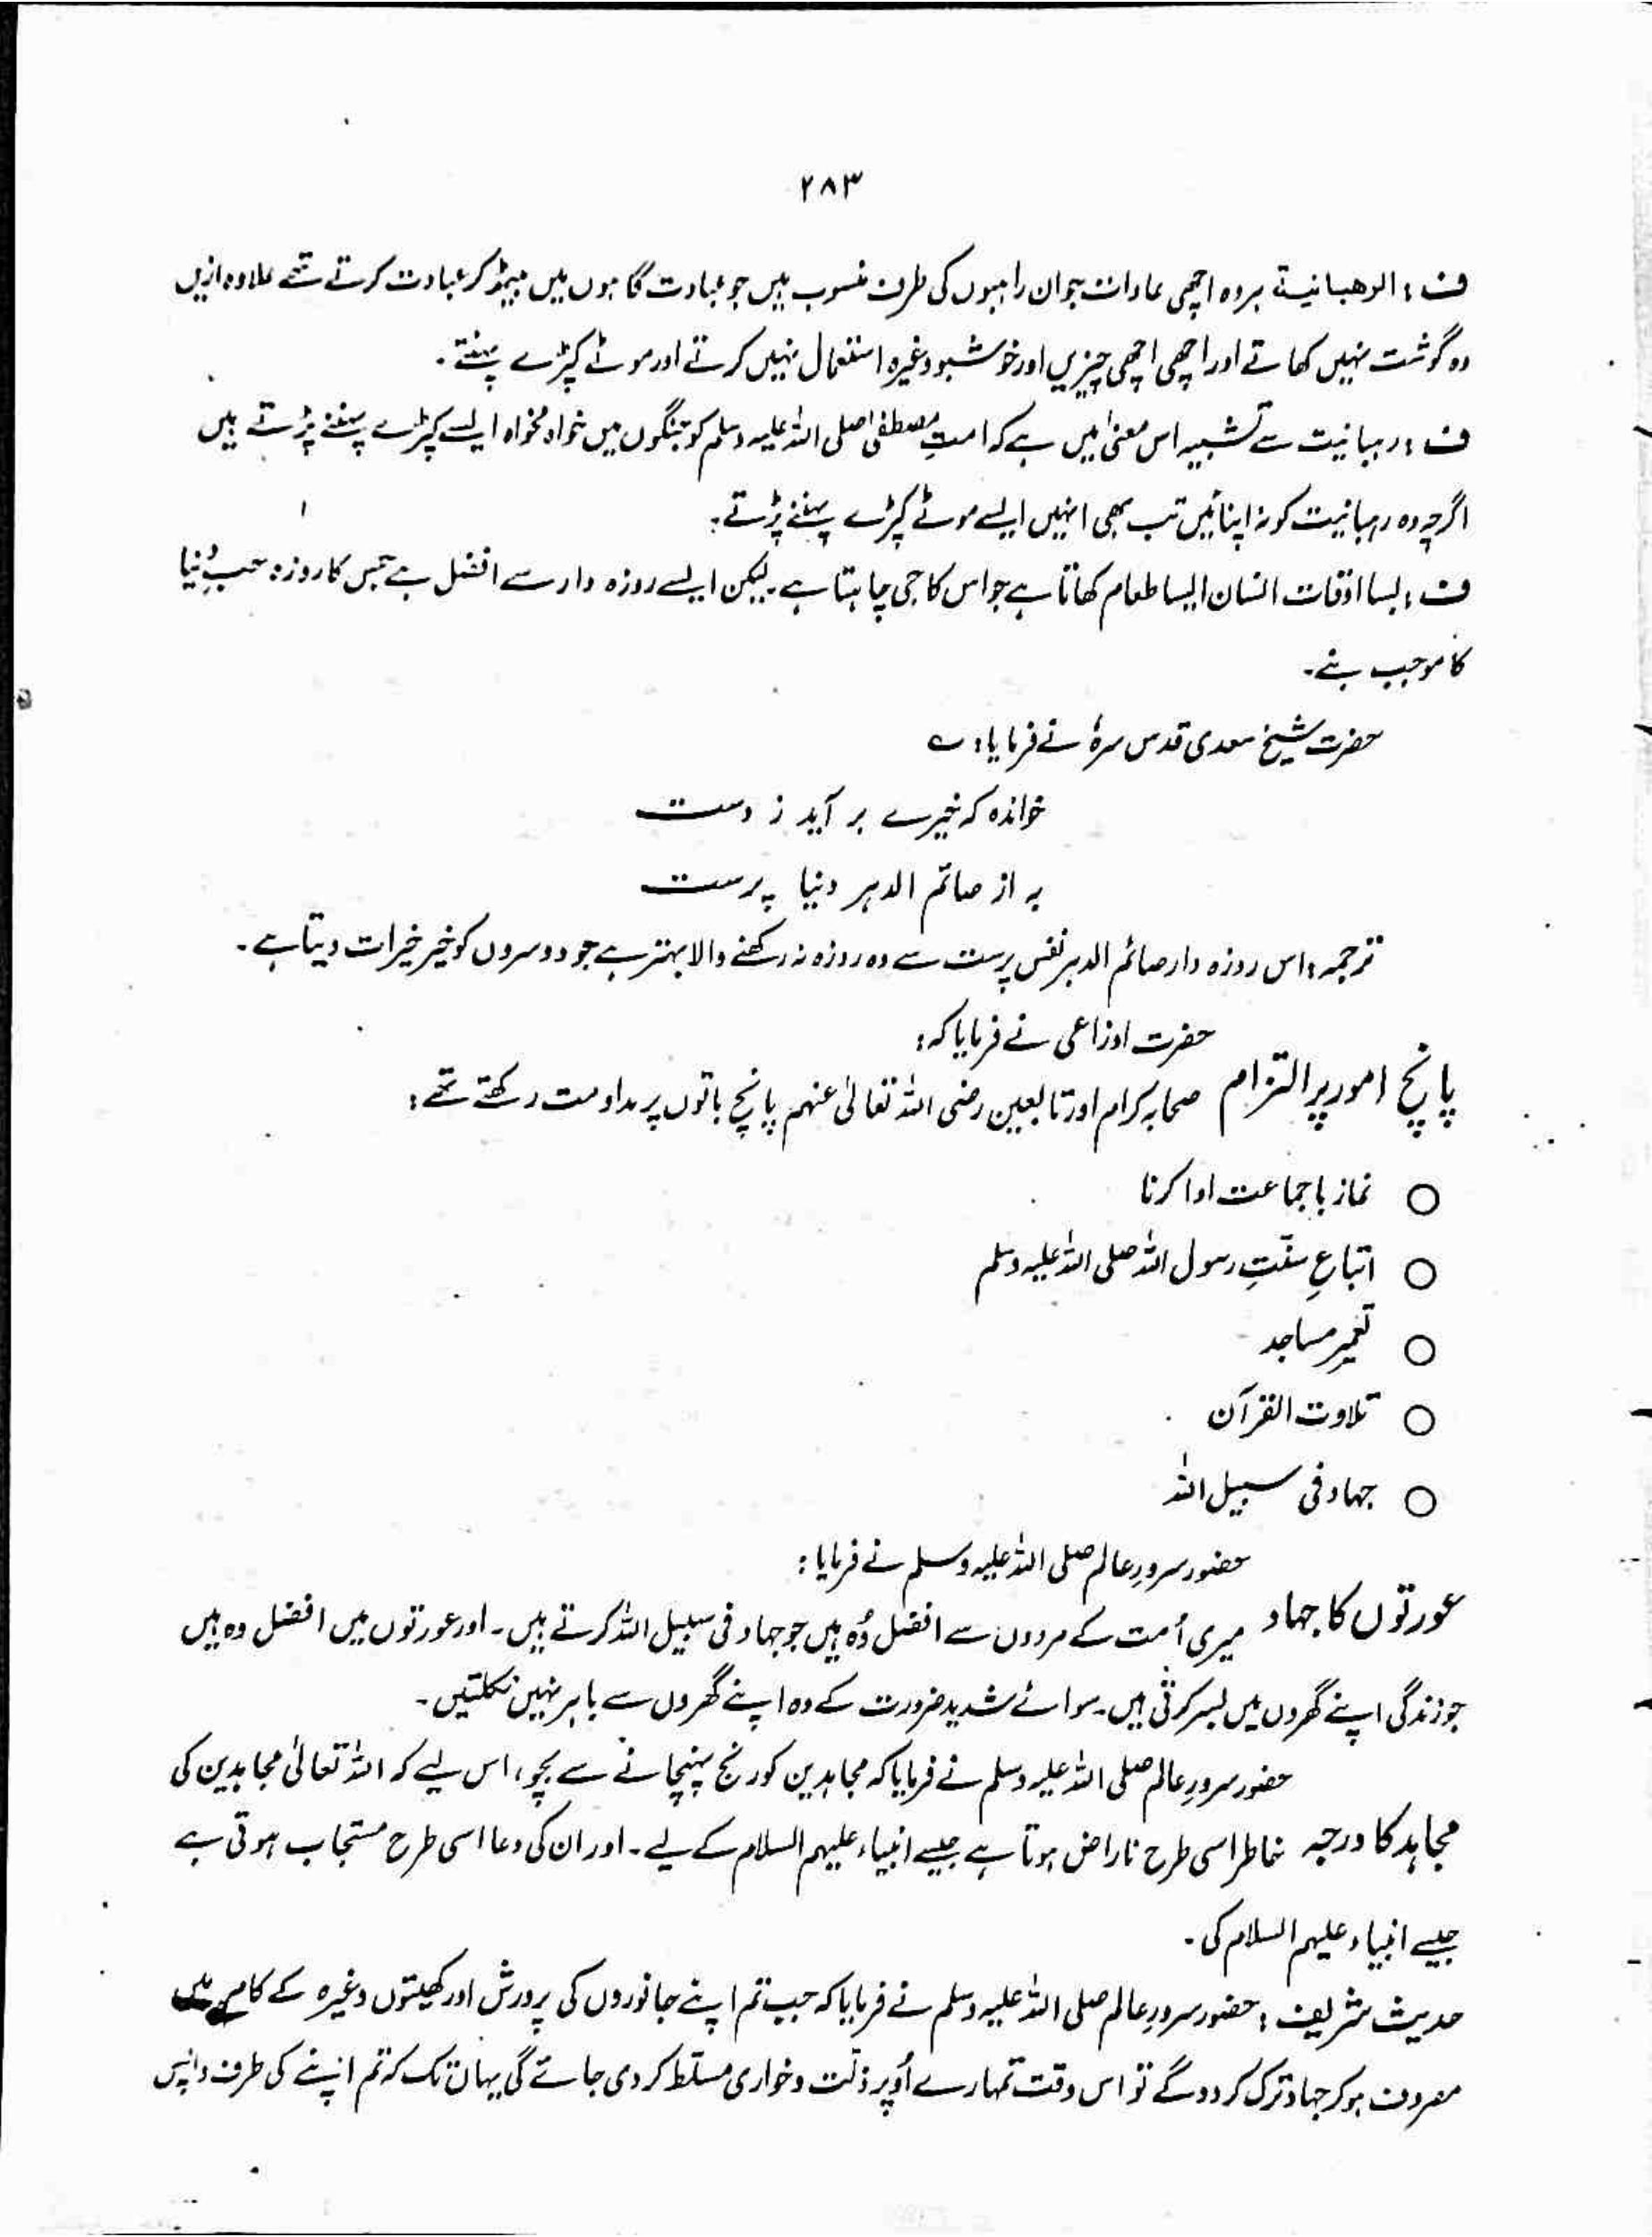 ۲۸۳
ف : الرهبانية ہر وہ اچھی عادات جو ان راہبوں کی طرف منسوب ہیں جو عبادت گاہوں میں بیٹھ کر عبادت کرتے تھے علاوہ ازیں
وہ گوشت نہیں کھاتے اور اچھی اچھی چیزیں اور خوشبو وغیرہ استعمال نہیں کرتے اور موٹے کپڑے پہنتے ۔
ف : رہبانیت سے تشبیہ اس معنیٰ میں ہے کہ امتِ مصطفیٰ صلی اللہ علیہ وسلم کو جنگوں میں خواہ مخواہ ایسے کپڑے پہننے پڑتے ہیں
اگرچہ وہ رہبانیت کو نہ اپنائیں تب بھی انہیں ایسے موٹے کپڑے پہننے پڑتے ۔
ف : بسا اوقات انسان ایسا طعام کھاتا ہے جو اس کا جی چاہتا ہے ۔ لیکن ایسے روزہ دار سے افضل ہے جس کا روزہ حبِ دُنیا
کا موجب بنے ۔
حضرت شیخ سعدی قدس سرہٗ نے فرمایا : ے
خوانده کہ خیرے بر آید ز دست
بہ از صائم الدہر دنیا پرست
ترجمہ : اس روزہ دار صائم الدہر نفس پرست سے وہ روزہ نہ رکھنے والا بہتر ہے جو دوسروں کو خیر خیرات دیتا ہے ۔
حضرت اوزاعی نے فرمایا کہ :
پانچ امور پر التزام صحابہ کرام اور تابعین رضی اللہ تعالیٰ عنہم پانچ باتوں پر مداومت رکھتے تھے :
○ نماز باجماعت ادا کرنا
○ اتباعِ سنّتِ رسول اللہ صلی اللہ علیہ وسلم
○ تعمیر مساجد
○ تلاوت القرآن
○ جہاد فی سبیل اللہ
حضور سرورِ عالم صلی اللہ علیہ وسلم نے فرمایا :
عورتوں کا جہاد میری اُمت کے مردوں سے افضل وُہ ہیں جو جہاد فی سبیل اللہ کرتے ہیں ۔ اور عورتوں میں افضل وہ ہیں
جو زندگی اپنے گھروں میں بسر کرتی ہیں ۔ سوائے شدید ضرورت کے وہ اپنے گھروں سے باہر نہیں نکلتیں ۔
حضور سرورِ عالم صلی اللہ علیہ وسلم نے فرمایا کہ مجاہدین کو رنج پہنچانے سے بچو، اس لیے کہ اللہ تعالیٰ مجاہدین کی
مجاہد کا درجہ خاطر اسی طرح ناراض ہوتا ہے جیسے انبیاء علیہم السلام کے لیے ۔ اور ان کی دعا اسی طرح مستجاب ہوتی ہے
جیسے انبیاء علیہم السلام کی ۔
حدیث شریف : حضور سرورِ عالم صلی اللہ علیہ وسلم نے فرمایا کہ جب تم اپنے جانوروں کی پرورش اور کھیتوں وغیرہ کے کام میں
مصروف ہو کر جہاد ترک کر دو گے تو اس وقت تمہارے اُوپر ذلّت و خواری مسلط کر دی جائے گی یہاں تک کہ تم اپنے کی طرف واپس